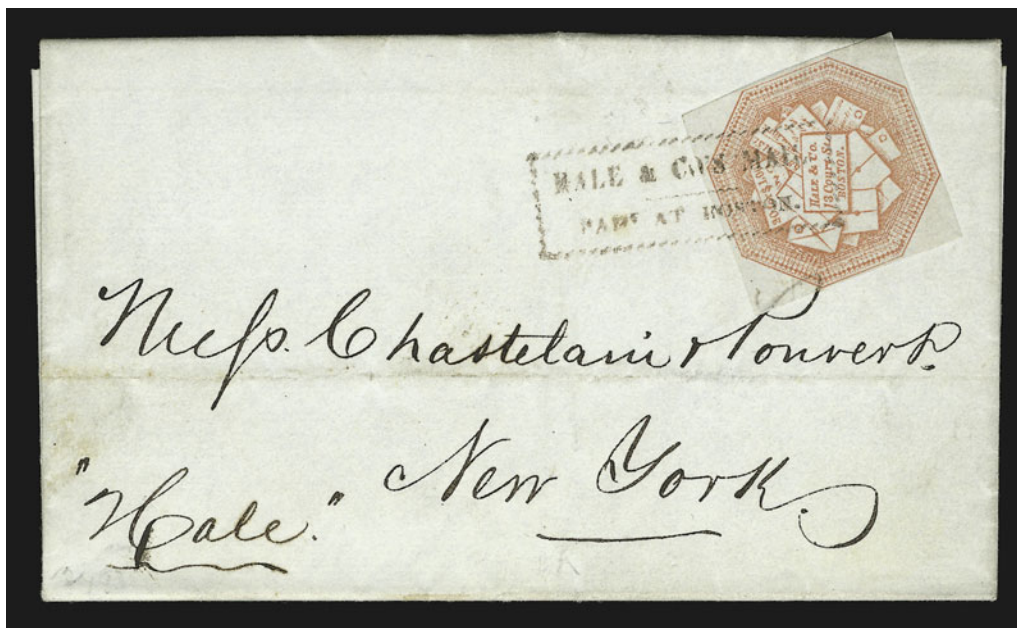 HALE & CO'S MAIL
PAID AT BOSTON.
HALE & Co.
13 Court St.
BOSTON.
Messrs. Chastelain & Ponvert
New York.
"Hale."